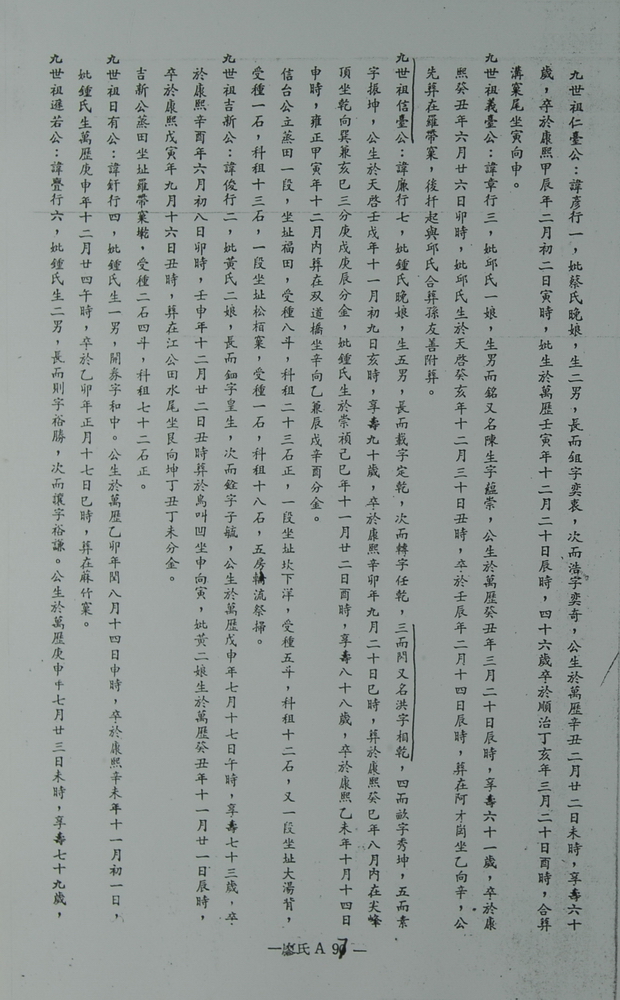 九世祖仁臺公：諱彥行一，妣蔡氏晚娘，生二男，長而鉏字奕衷，次而浩字奕奇，公生於萬歷辛丑二月廿二日未時，享壽六十
歲，卒於康熙甲辰年二月初二日寅時，妣生於萬歷壬寅年十二月二十日辰時，四十六歲卒於順治丁亥年三月二十日酉時，合葬
溝窠尾坐寅向申。
九世祖義臺公：諱章行三，妣邱氏一娘，生男而銘又名陳生字蘊崇，公生於萬歷癸丑年三月二十日辰時，享壽六十一歲，卒於康
熙癸丑年六月廿六日卯時，妣邱氏生於天啓癸亥年十二月三十日丑時，卒於壬辰年二月十四日辰時，葬在阿才崗坐乙向辛，公
先葬在羅帶窠，後扦起與邱氏合葬孫友善附葬。
九世祖信臺公：諱廉行七，妣鍾氏晚娘，生五男，長而載字定乾，次而轉字任乾，三而閂又名洪字相乾，四而畝字秀坤，五而素
字振坤，公生於天啓壬戌年十一月初九日亥時，享壽九十歲，卒於康熙辛卯年九月二十日巳時，葬於康熙癸巳年八月內在尖峰
頂坐乾向巽兼亥巳三分庚戌庚辰分金，妣鍾氏生於崇禎己巳年十一月廿二日酉時，享壽八十八歲，卒於康熙乙未年十月十四日
申時，雍正甲寅年十二月內葬在双道橋坐辛向乙兼辰戌辛酉分金。
信台公立蒸田一段，坐址福田，受種八斗，科租二十三石正，一段坐址坎下洋，受種五斗，科租十二石，又一段坐址大湯背，
受種一石，科租十三石，一段坐址松栢窠，受種一石，科租十八石，五房輪流祭掃。
九世祖吉新公：諱俊行二，妣黃氏二娘，長而鈿字皇生，次而銓字子毓，公生於萬歷戊申年七月十七日午時，享壽七十三歲，卒
於康熙辛酉年六月初八日卯時，壬申年十二月廿二日丑時葬於鳥叫凹坐申向寅，妣黃二娘生於萬歷癸丑年十一月廿一日辰時，
卒於康熙戊寅年九月十六日丑時，葬在江公田水尾坐艮向坤丁丑丁未分金。
吉新公蒸田坐址羅帶窠墘，受種二石四斗，科租七十二石正。
九世祖日有公：諱釬行四，妣鍾氏生一男，開券字和中。公生於萬歷乙卯年閏八月十四日申時，卒於康熙辛未年十一月初一日，
妣鍾氏生萬歷庚申年十二月廿四午時，卒於乙卯年正月十七日巳時，葬在蔴竹窠。
九世祖遜若公：諱疊行六，妣鍾氏生二男，長而則字裕勝，次而讓字裕謙。公生於萬歷庚申年七月廿三日未時，享壽七十九歲，
—廖氏 A 97—